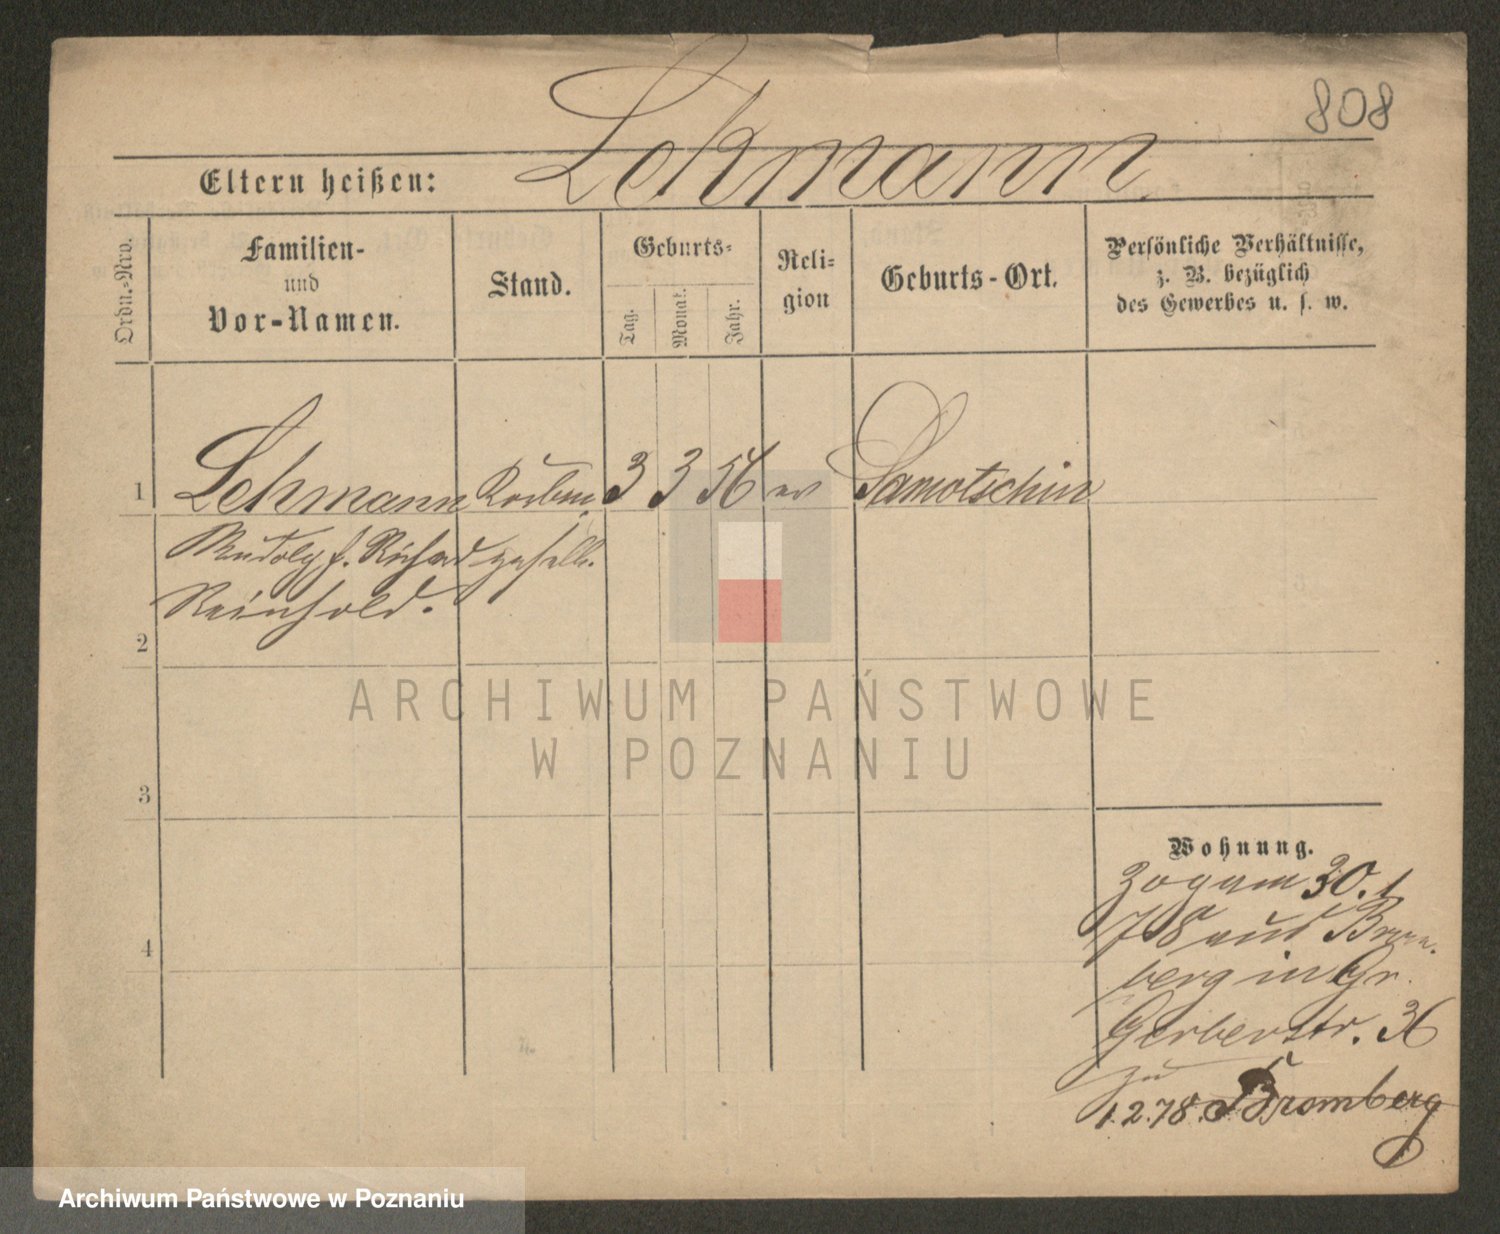 808
Lehmann
Eltern heißen:
Ordn.-Nro.
Familien-
und
Vor-Namen.
Stand.
Geburts-
Tag.
Monat.
Jahr.
Reli-
gion
Geburts-Ort.
Persönliche Verhältnisse,
z. B. bezüglich
des Gewerbes u. s. w.
1 Lehmann 3 3 56 ev Samotschin
Rudolf Richard gesell.
Reinhold.
2
ARCHIWUM PAŃSTWOWE
W POZNANIU
3
Wohnung.
Zog am 30. 1
78 aus Brom-
berg in Gr.
Gerberstr. 36
zu
1.2.78. Bromberg
4
Archiwum Państwowe w Poznaniu